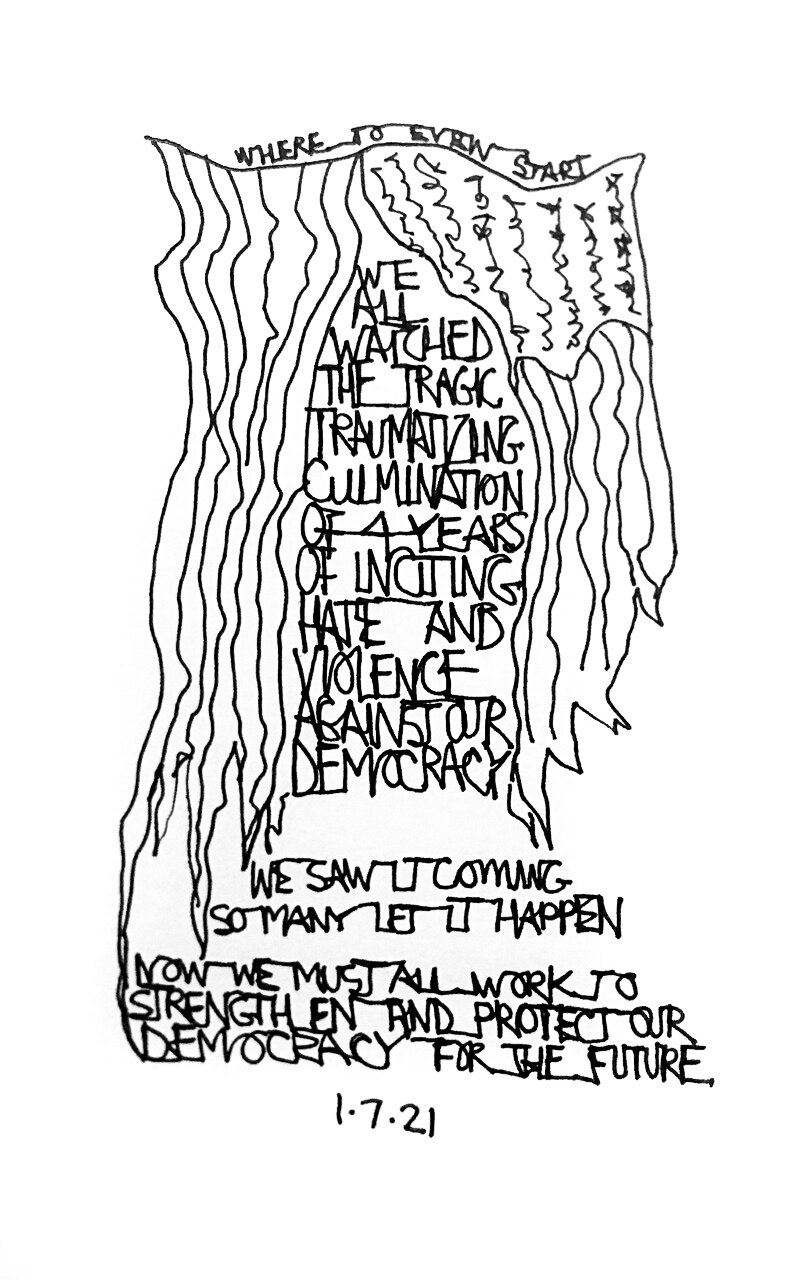 WHERE TO EVEN START
WE
ALL
WATCHED
THE TRAGIC
TRAUMATIZING
CULMINATION
OF 4 YEARS
OF INCITING
HATE AND
VIOLENCE
AGAINST OUR
DEMOCRACY
WE SAW IT COMING
SO MANY LET IT HAPPEN
NOW WE MUST ALL WORK TO
STRENGTHEN AND PROTECT OUR
DEMOCRACY FOR THE FUTURE.
1.7.21